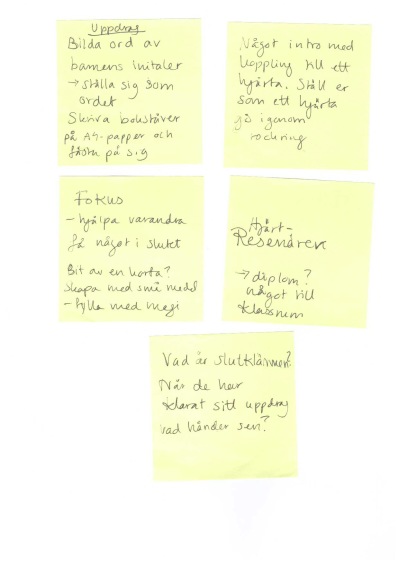 Uppdrag
Bilda ord av
barnens initaler
→ ställa sig som
ordet
Skriva bokstäver
på A4-papper och
fästa på sig
Något intro med
koppling till ett
hjärta. Ställ er
som ett hjärta
gå igenom
rockring
Fokus
- hjälpa varandra
få något i slutet
Bit av en karta?
skapa med små medel
- fylla med magi
Hjärt-
Resenären
→ diplom?
något till
klassrum
Vad är slutklämmen?
När de har
klarat sitt uppdrag
vad händer sen?